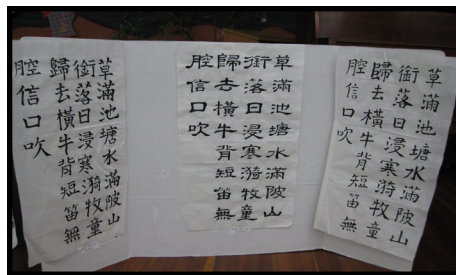 草滿池塘水滿陂山
銜落日浸寒漪牧童
歸去橫牛背短笛無
腔信口吹
草滿池塘水滿陂山
銜落日浸寒漪牧童
歸去橫牛背短笛無
腔信口吹
草滿池塘水滿陂山
銜落日浸寒漪牧童
歸去橫牛背短笛無
腔信口吹